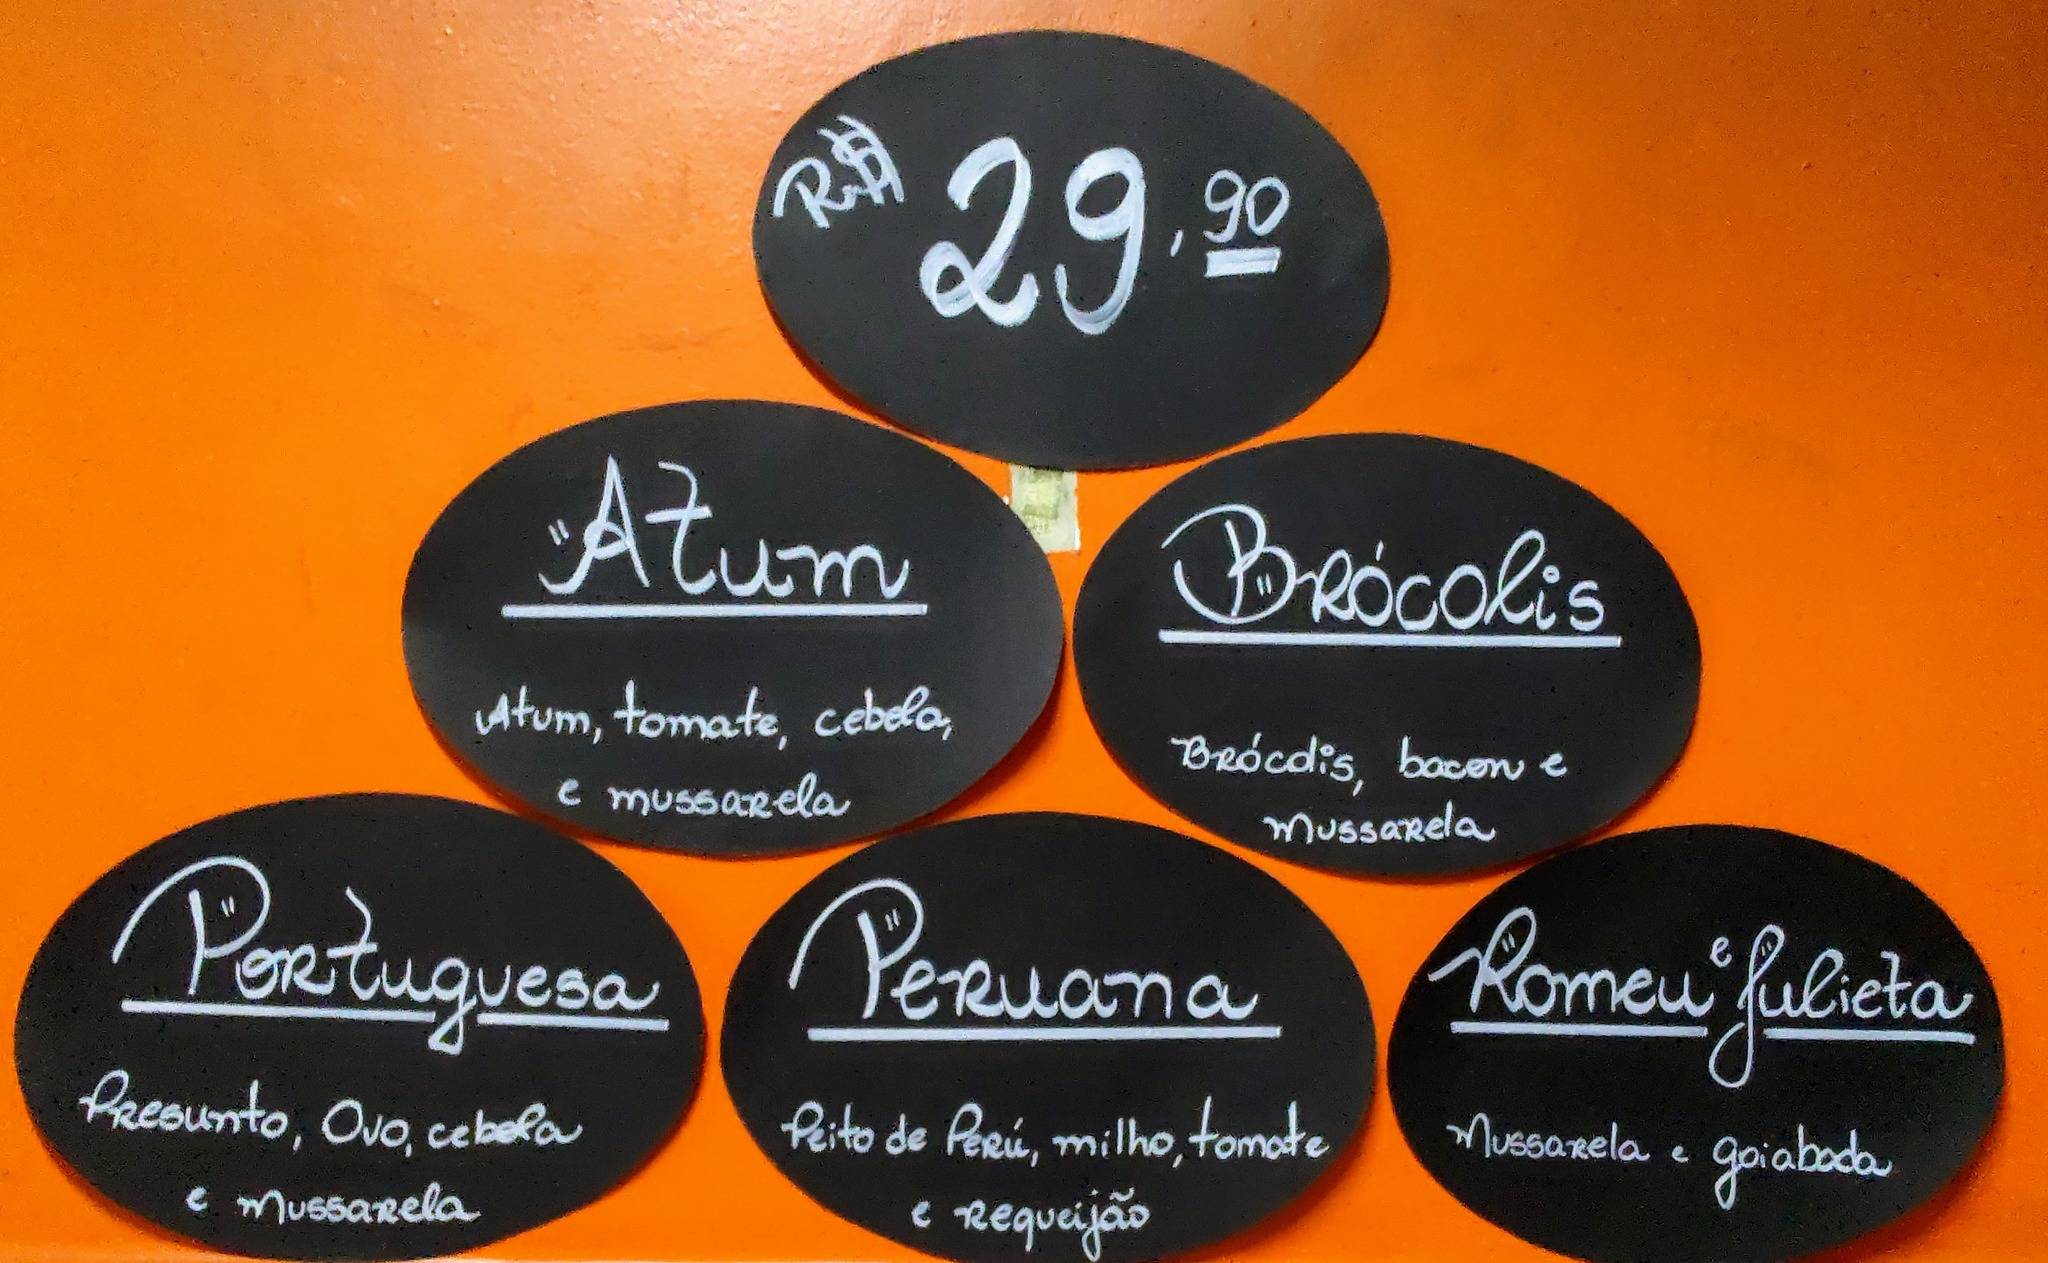 R$ 29,90
"Atum
Atum, tomate, cebola,
e mussarela
Brócolis
Brócolis, bacon e
mussarela
Portuguesa
Presunto, Ovo, cebola
e mussarela
Peruana
Peito de Perú, milho, tomate
e requeijão
Romeu e Julieta
Mussarela e goiabada